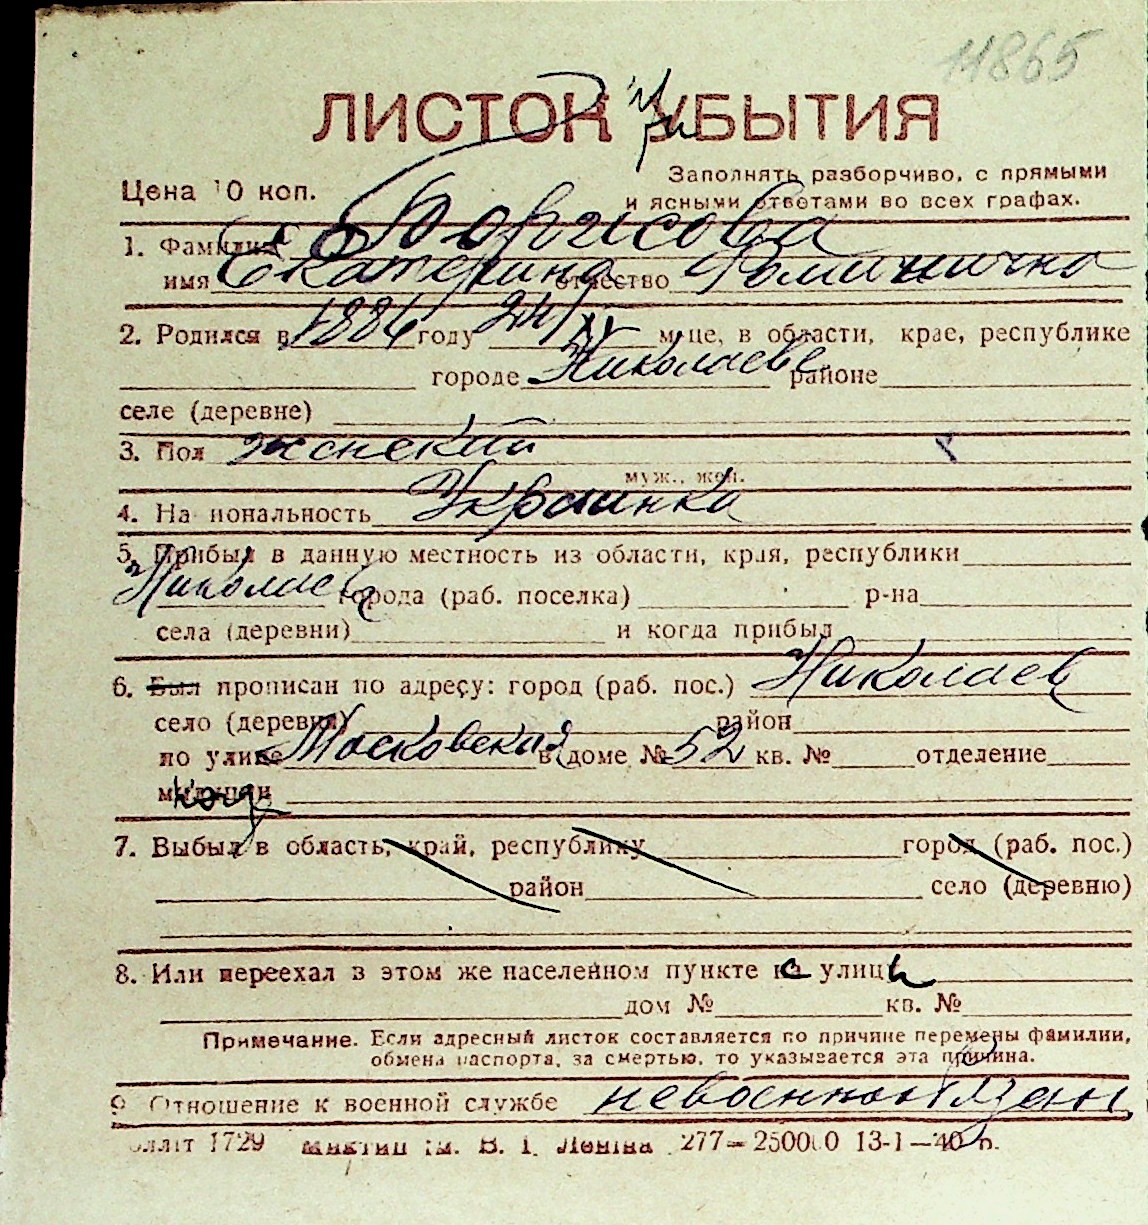 11865
ЛИСТОК УБЫТИЯ
Цена 10 коп.
Заполнять разборчиво, с прямыми
и ясными ответами во всех графах.
1. Фамилия Борисова
имя Екатерина отчество Фоминична
2. Родился в 1886 году 24/XI м-це, в области, крае, республике
городе Николаеве районе
селе (деревне)
3. Пол женский
муж., жен.
4. Национальность Украинка
5. Прибыл в данную местность из области, края, республики
Николаев города (раб. поселка) р-на
села (деревни) и когда прибыл
6. Был прописан по адресу: город (раб. пос.) Николаев
село (деревня) район
по улице Московская в доме № 52 кв. № отделение
милиции
7. Выбыл в область, край, республику город (раб. пос.)
район село (деревню)
8. Или переехал в этом же населенном пункте с улицы
дом № кв. №
Примечание. Если адресный листок составляется по причине перемены фамилии,
обмена паспорта, за смертью, то указывается эта причина.
9. Отношение к военной службе невоеннообязан
1729 ім. В. І. Леніна 277—250000 13-1—40 р.